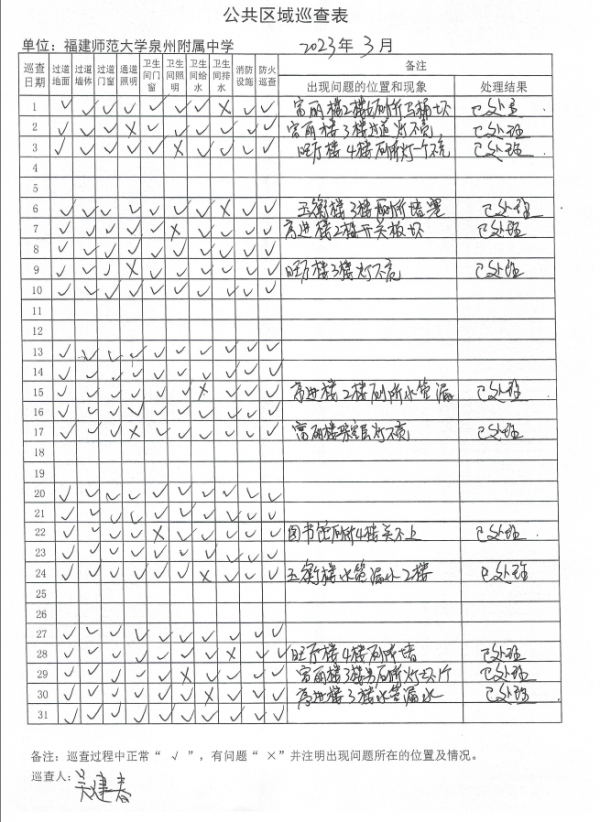 公共区域巡查表
单位：福建师范大学泉州附属中学 2023年 3月
巡查日期 过道地面 过道墙体 过道门窗 通道照明 卫生间门窗 卫生间照明 卫生间给水 卫生间排水 消防设施 防火巡查 备注
出现问题的位置和现象 处理结果
1 ✓ ✓ ✓ ✓ ✓ ✓ ✓ × ✓ ✓ 富丽楼2楼厕所马桶坏 已处理
2 ✓ ✓ ✓ × ✓ ✓ ✓ ✓ ✓ ✓ 富丽楼3楼过道灯不亮 已处理
3 ✓ ✓ ✓ ✓ ✓ × ✓ ✓ ✓ ✓ 旺厅楼4楼厕所灯一个不亮 已处理
4
5
6 ✓ ✓ ✓ ✓ ✓ ✓ ✓ × ✓ ✓ 玉衡楼3楼厕所堵塞 已处理
7 ✓ ✓ ✓ ✓ ✓ × ✓ ✓ ✓ ✓ 高进楼2楼开关板坏 已处理
8 ✓ ✓ ✓ ✓ ✓ ✓ ✓ ✓ ✓ ✓
9 ✓ ✓ ✓ × ✓ ✓ ✓ ✓ ✓ ✓ 旺厅楼3楼灯不亮 已处理
10 ✓ ✓ ✓ ✓ ✓ ✓ ✓ ✓ ✓ ✓
11
12
13 ✓ ✓ ✓ ✓ ✓ ✓ ✓ ✓ ✓ ✓
14 ✓ ✓ ✓ ✓ ✓ ✓ ✓ ✓ ✓ ✓
15 ✓ ✓ ✓ ✓ ✓ ✓ × ✓ ✓ ✓ 高进楼2楼厕所水管漏 已处理
16 ✓ ✓ ✓ ✓ ✓ ✓ ✓ ✓ ✓ ✓
17 ✓ ✓ ✓ × ✓ ✓ ✓ ✓ ✓ ✓ 富丽楼灯不亮 已处理
18
19
20 ✓ ✓ ✓ ✓ ✓ ✓ ✓ ✓ ✓ ✓
21 ✓ ✓ ✓ ✓ ✓ ✓ ✓ ✓ ✓ ✓
22 ✓ ✓ ✓ ✓ × ✓ ✓ ✓ ✓ ✓ 图书馆厕所4楼关不上 已处理
23 ✓ ✓ ✓ ✓ ✓ ✓ ✓ ✓ ✓ ✓
24 ✓ ✓ ✓ ✓ ✓ ✓ × ✓ ✓ ✓ 玉衡楼水管漏水2楼 已处理
25
26
27 ✓ ✓ ✓ ✓ ✓ ✓ ✓ ✓ ✓ ✓
28 ✓ ✓ ✓ ✓ ✓ ✓ ✓ × ✓ ✓ 旺厅楼4楼厕所堵 已处理
29 ✓ ✓ ✓ ✓ ✓ × ✓ ✓ ✓ ✓ 富丽楼3楼男厕所灯坏1个 已处理
30 ✓ ✓ ✓ ✓ ✓ ✓ × ✓ ✓ ✓ 高进楼3楼水管漏水 已处理
31 ✓ ✓ ✓ ✓ ✓ ✓ ✓ ✓ ✓ ✓
备注：巡查过程中正常“ √ ”，有问题“ ×”并注明出现问题所在的位置及情况。
巡查人：吴建春